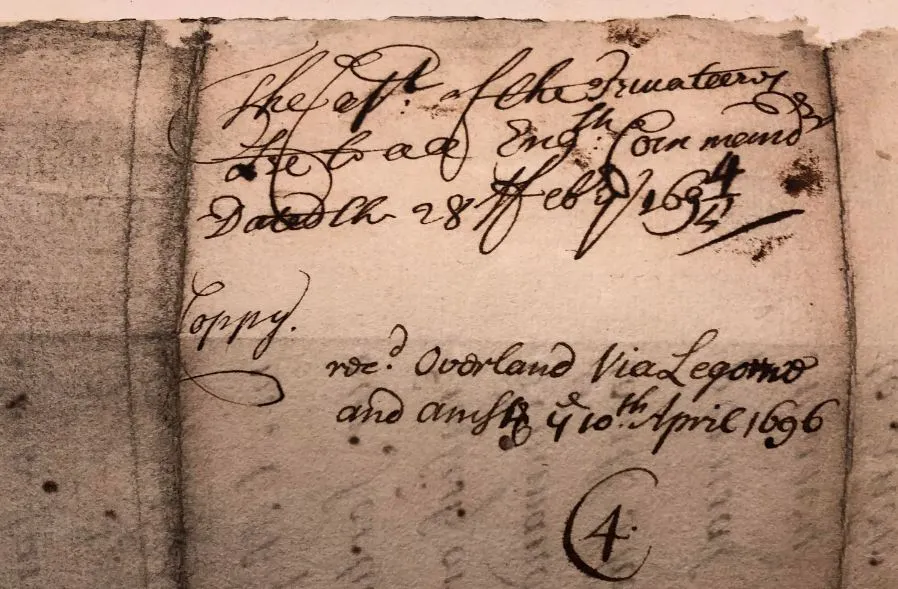 The Capt. of the Privateers
Lre to all Engsh. Commandrs
Dated the 28 ffebry 1694/4
Coppy.
recd. Overland Via Legorne
and ye 10th April 1696
4.